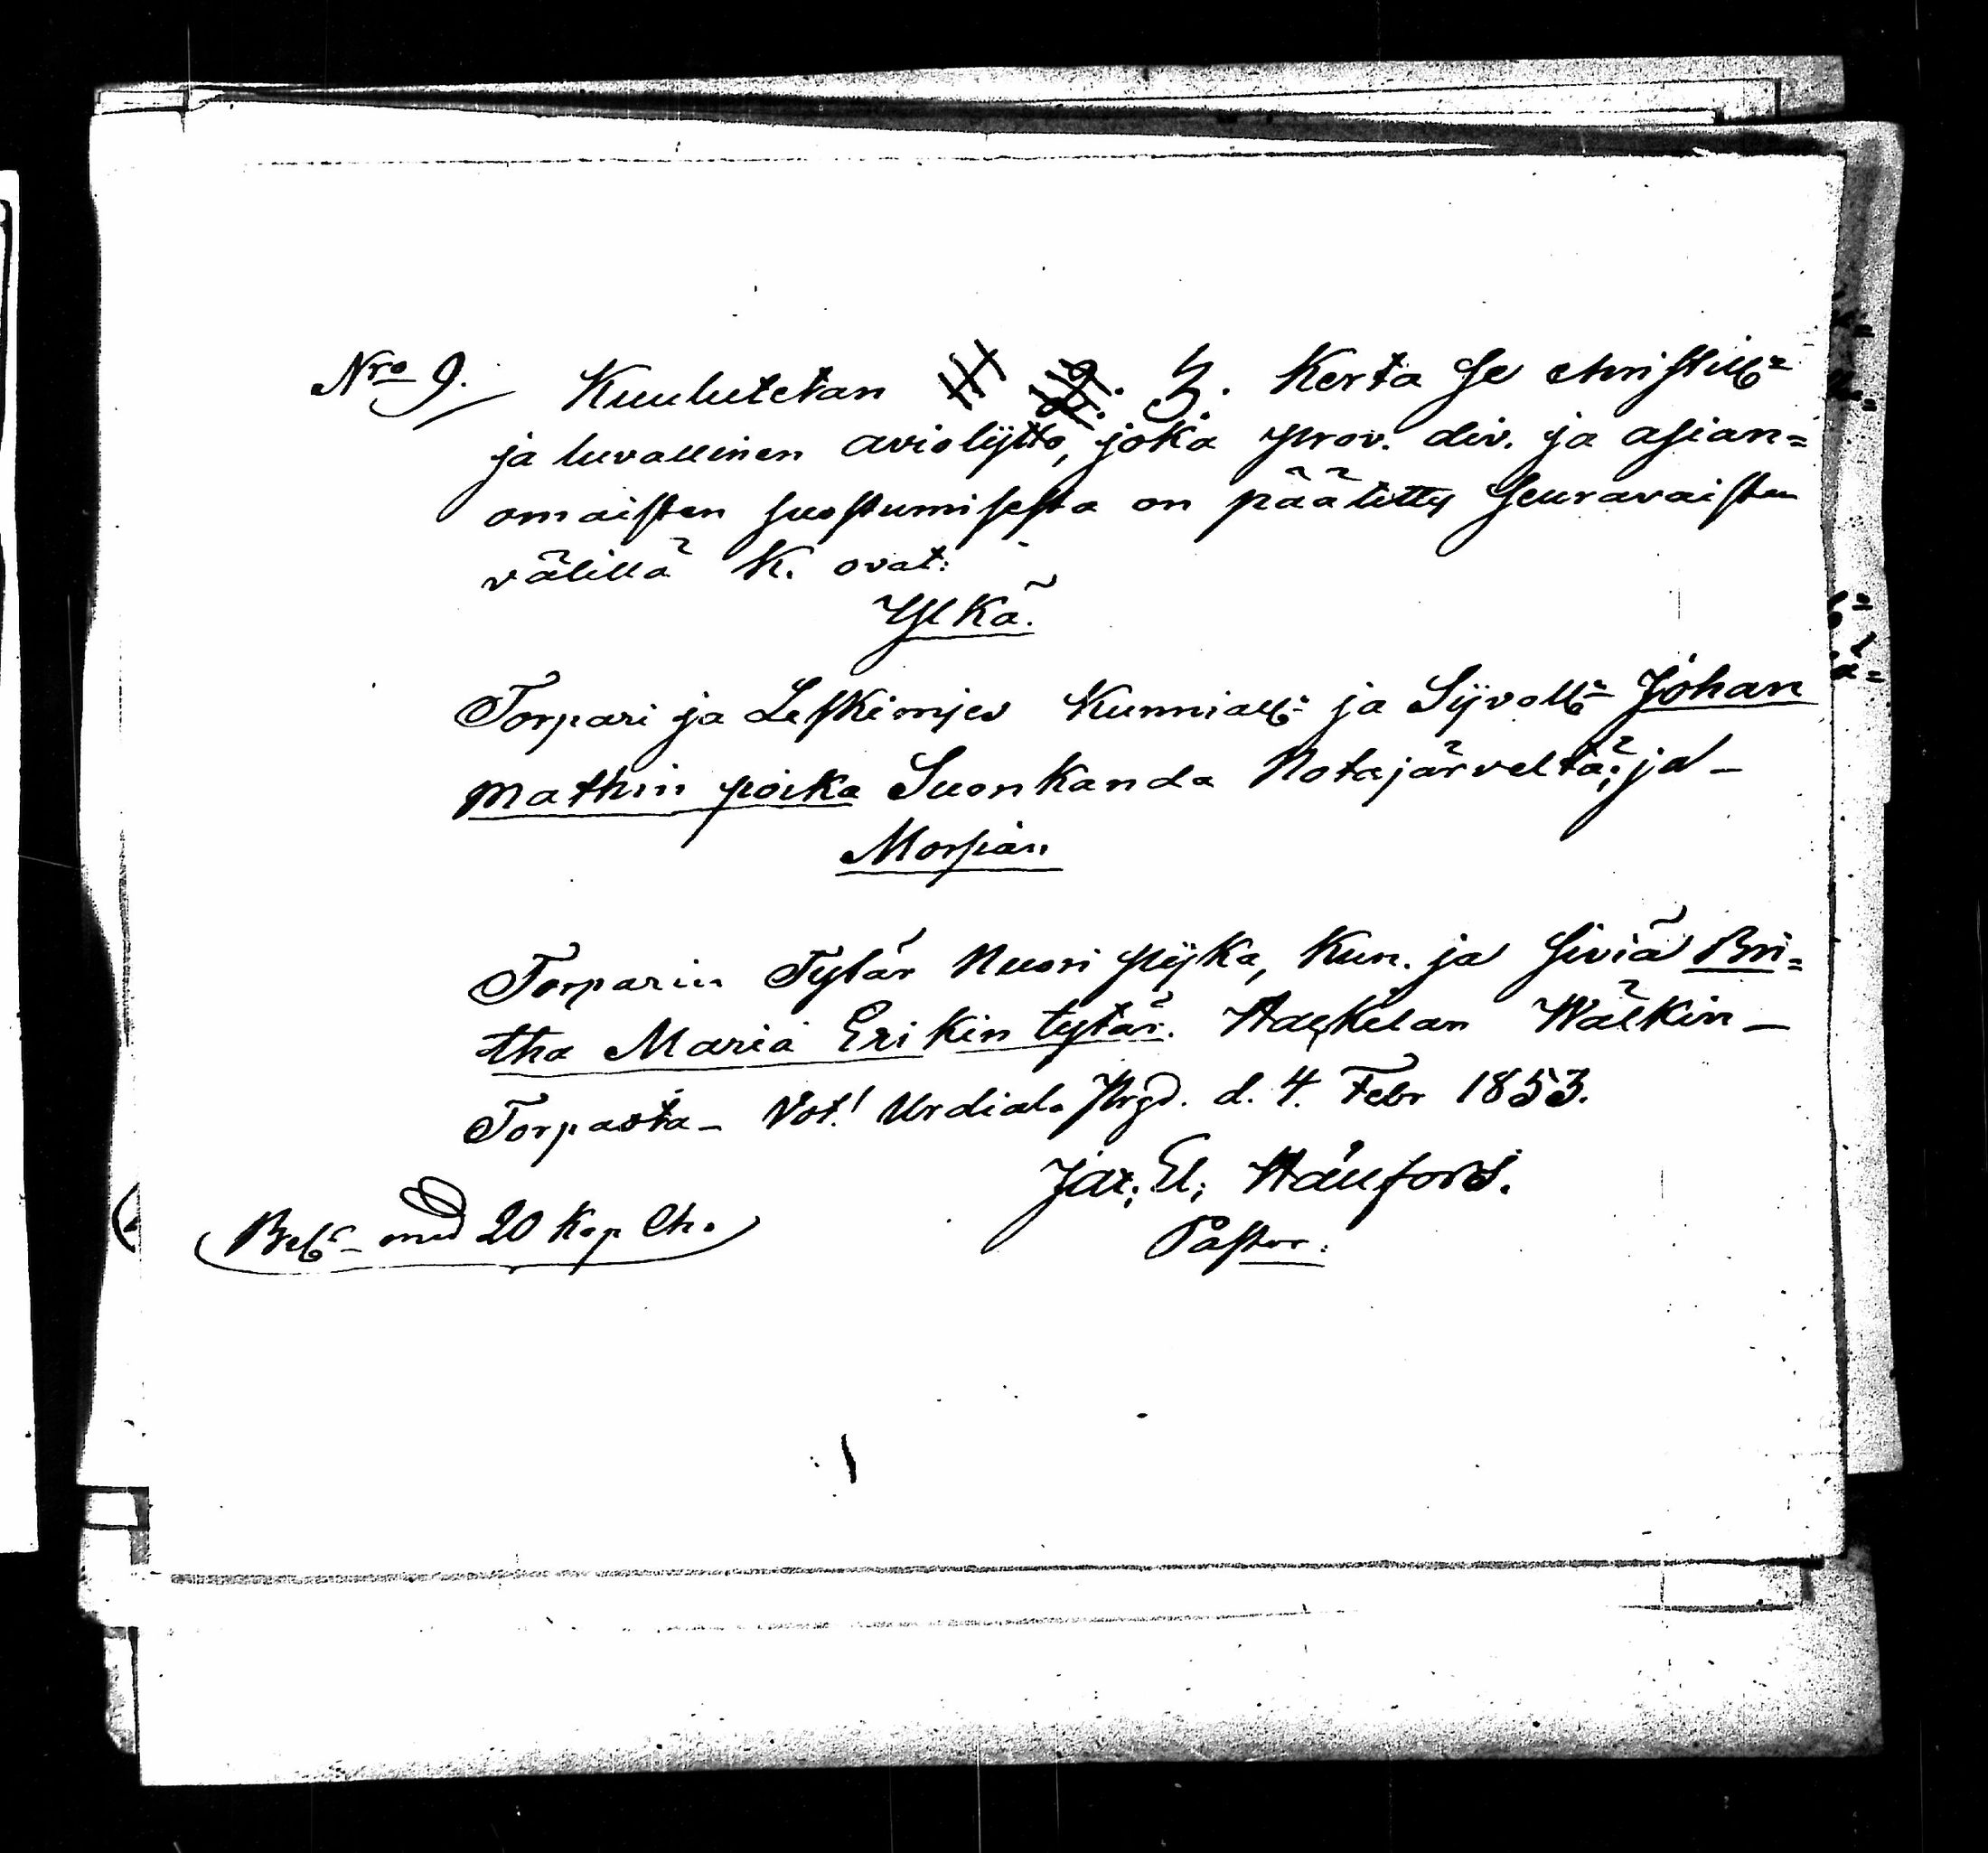 Nro 9. Kuulutetan 1. 2. 3. Kerta se christill:
ja luvallinen aviolijtto, joka prov. div. ja asian=
omaisten suostumisesta on päätetty seuravaisten
välillä K. ovat:
Ylkä.
Torpari ja Leskimjes Kunniall: ja Sijvoll: Johan
Mathin poika Suonkanda Notajärveltä; ja -
Morsian
Torparin Tytär Nuori pijka, Kun. ja siviä Bri=
tha Maria Erikin tytär. Wälkin -
Torpasta - Vot! Urdiala Prgd. d. 4. Febr 1853.
Pastor.
med 20 Kop